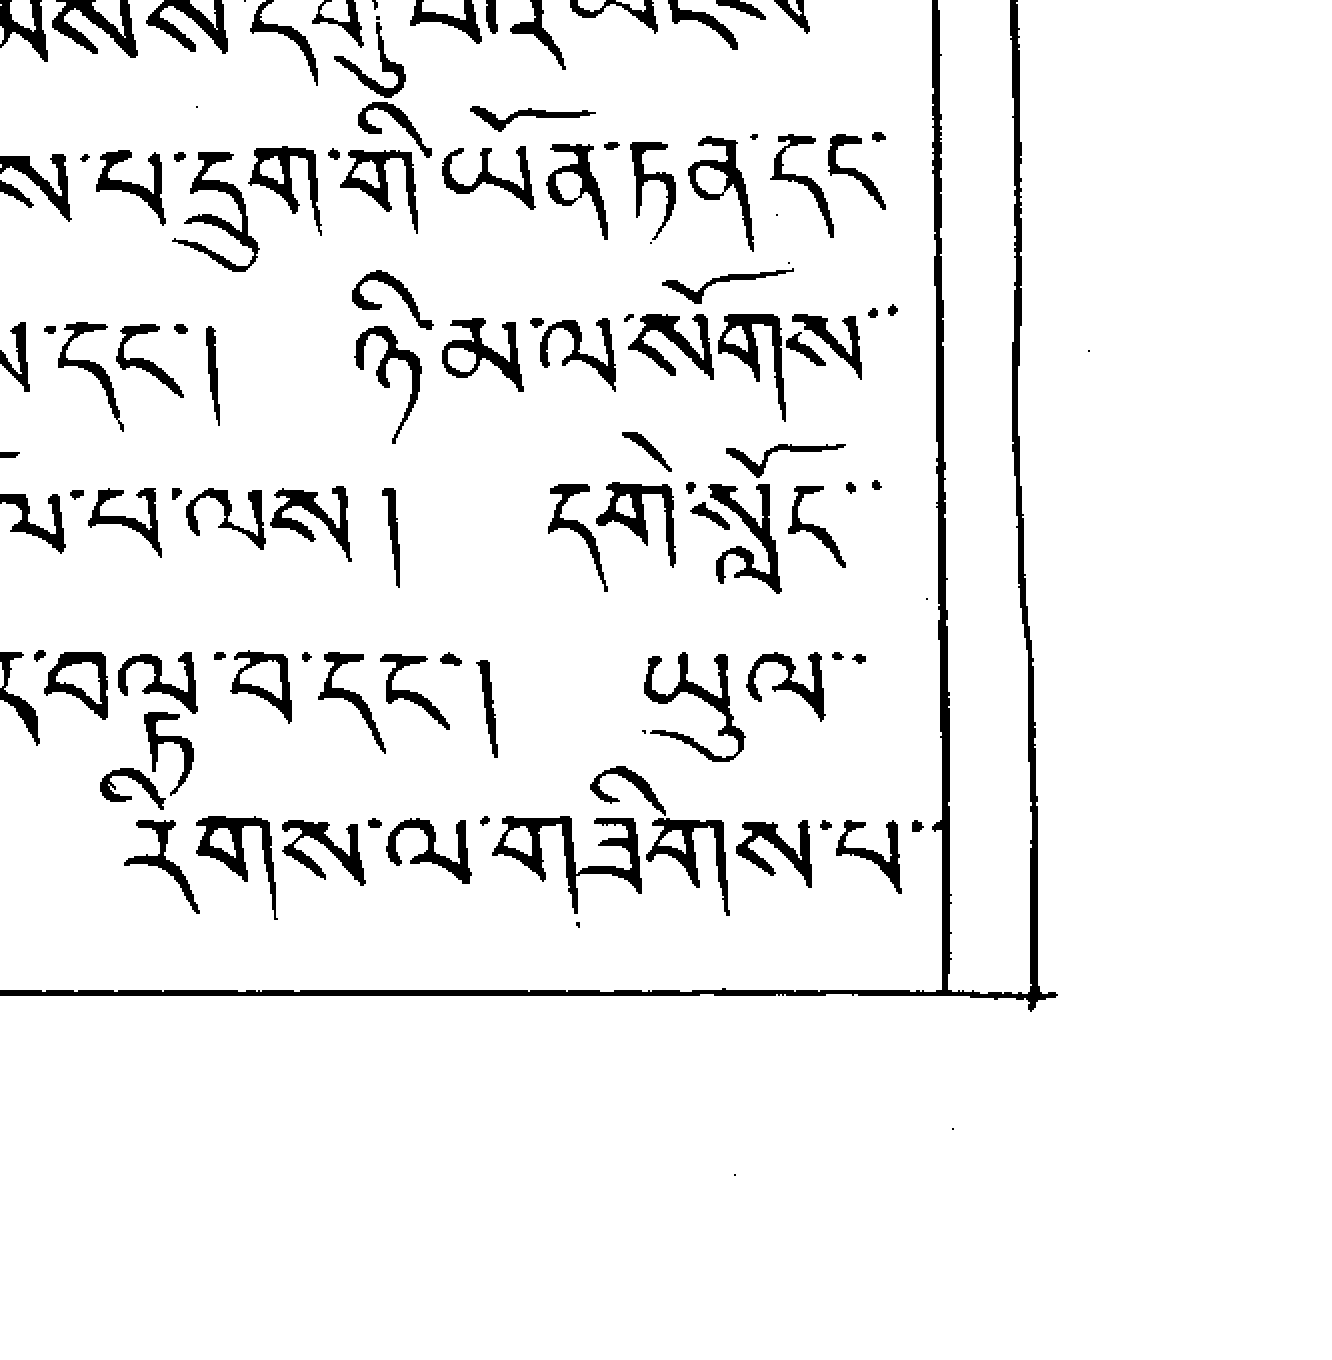 ས་པ་དྲུག་གི་ཡོན་ཏན་དང་
ས་དང་། ཉི་མ་ལ་སོགས་་
པ་ལས། དགེ་སློང་་
བལྟ་བ་དང་། ཡུལ་་
རིགས་ལ་གཟིགས་པ་་